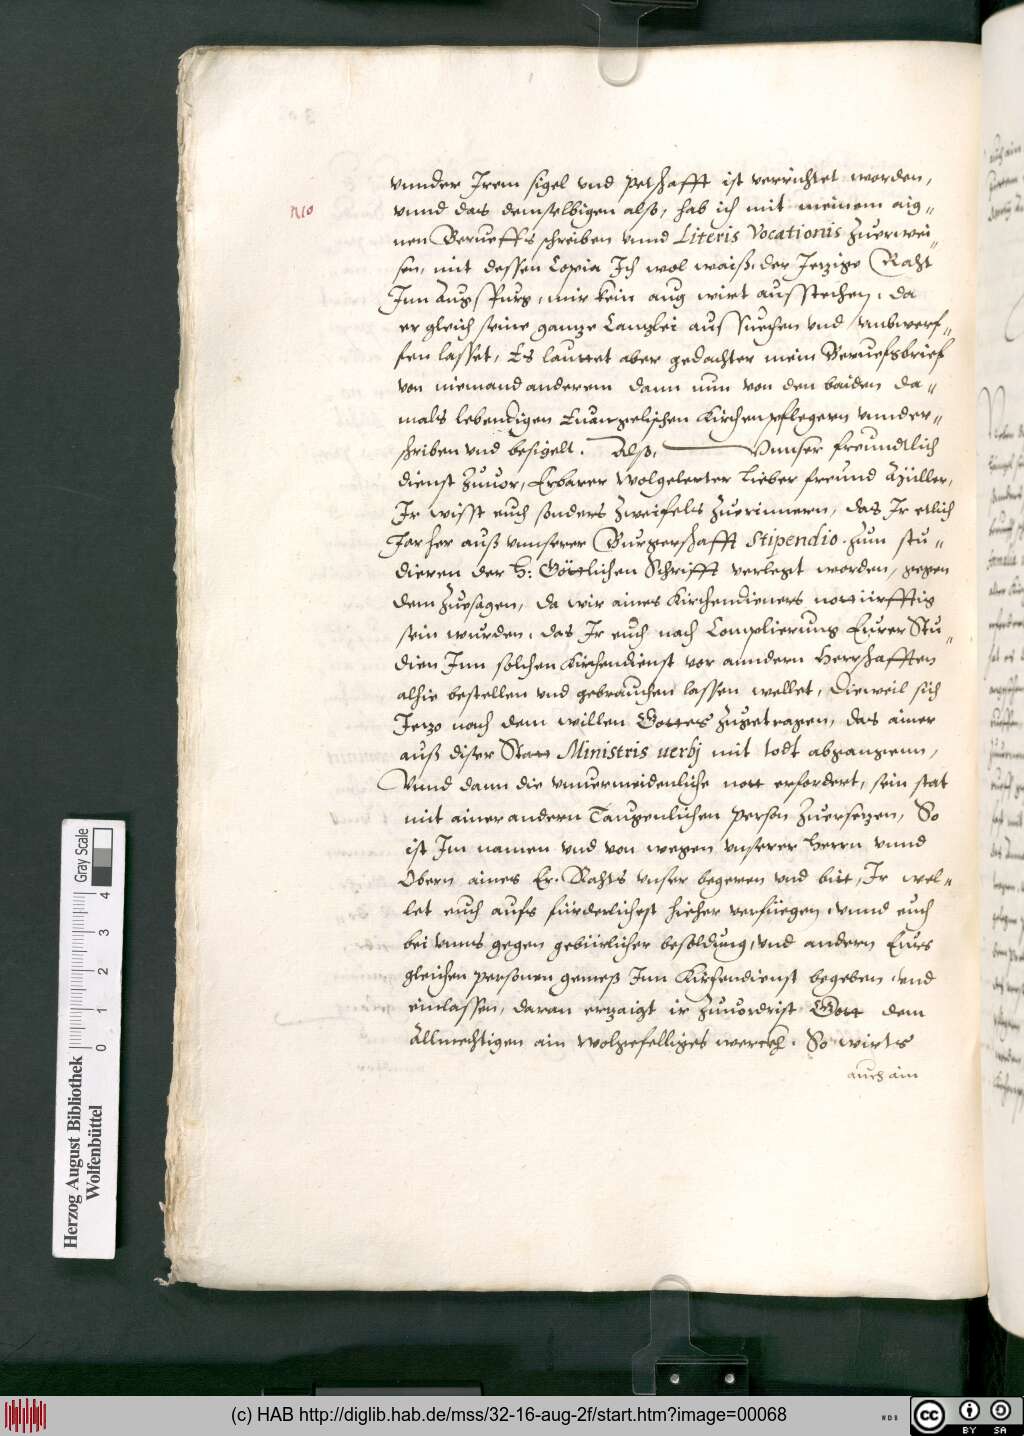 vnnder Irem sigel vnd petschafft ist verrichtet worden,
N 10
vnnd das demselbigen also, hab ich mit meinem aig-
nen Berueffs schreiben vnnd Literis Vocationis zuerwei-
sen, mit dessen Copia Ich wol waiß, der Jezige Raht
Inn Augspurg, mir kein aug wirt ausstechen, da
er gleich seine ganze Canzlei aussuechen vnd vmbwerf-
fen lasset, Es lauttet aber gedachter mein Beruefsbrief
von niemand anderem dann nun von den baiden da-
mals lebendigen Euangelischen Kirchenpflegern vnnder-
schriben vnd besigelt. Also, Vnnser freundtlich
dienst zuuor, Erbarer wolgelerter lieber freund Müller,
Ir wisst euch sonders zweifels zuerinnern, das Ir etlich
Jar her auß vnnserer Burgerschafft Stipendio zum stu-
dieren der H: Göttlichen Schrifft verlegt worden, gegen
dem zuesagen, da wir aines Kirchendieners notturfftig
sein wurden, das Ir euch nach Complierung Eurer Stu-
dien Inn solchen Kirchendienst vor anndern Herrschafften
alhie bestellen vnd gebrauchen lassen wellet, Dieweil sich
Jezo nach dem willen Gottes zugetragen, das ainer
auß diser Statt Ministris uerbj mit todt abgangenn,
Vnnd dann die vnuermeidenliche nott erfordert, sein stat
mit ainer andern Taugenlichen person zuersezen, So
ist Im namen vnd von wegen vnserer Herrn vnnd
Obern aines Er. Rahts vnser begeren vnd bitt, Ir wel-
let euch aufs fürderlichest hieher verfüegen, vnnd euch
bei vnns gegen gebürlicher besoldung, vnd andern Eurs
gleichen personen gemeß Inn Kirchendienst begeben, vnd
einlassen, daran erzaigt ir zuuordrist Gott dem
Allmechtigen ain wolgefelliges werckh. So wirts
auch ain
Herzog August Bibliothek
Wolfenbüttel
0 1 2 3 4
Gray Scale
(c) HAB http://diglib.hab.de/mss/32-16-aug-2f/start.htm?image=00068
WDB
cc BY SA